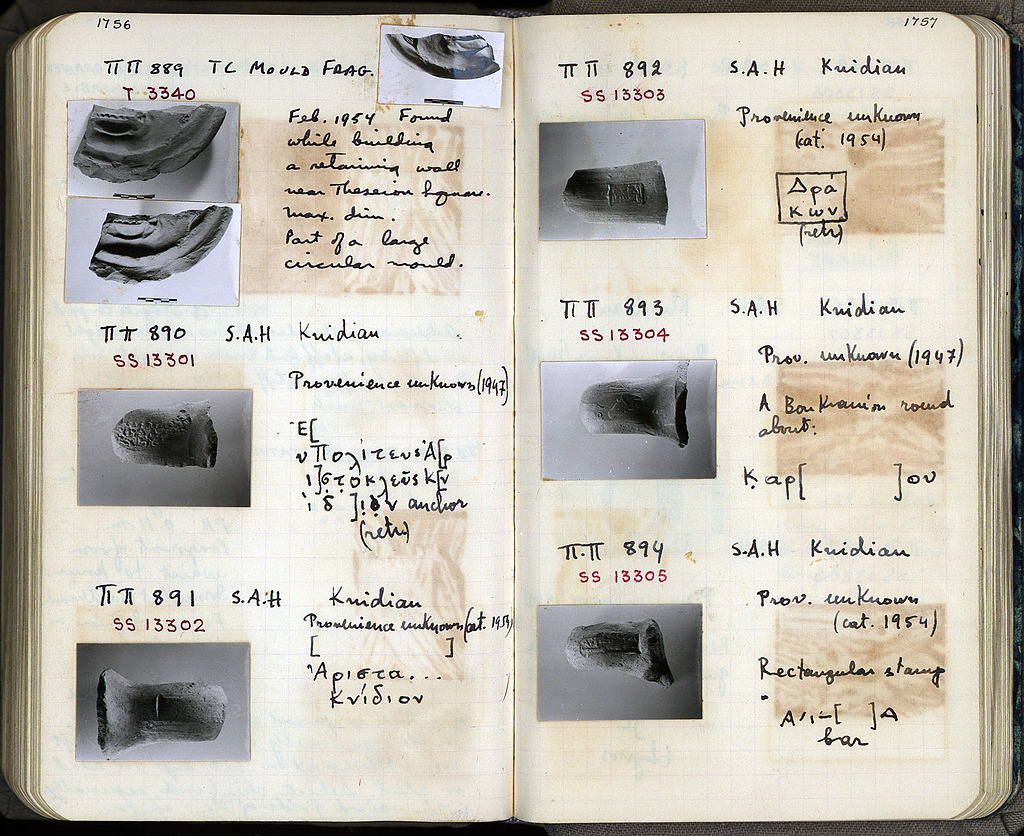 1756
ΠΠ 889 TC MOULD FRAG.
T 3340
Feb. 1954 Found
while building
a retaining wall
near Theseion Square.
Max. dim.
Part of a large
circular mould.
ΠΠ 890 S.A.H Knidian
SS 13301
Provenience unknown (1947)
Ἐ[
υ Πολίτευς Ἀ[ρ
ι]στοκλεῦς Κ[ν
ίδ ]ιον anchor
(retr)
ΠΠ 891 S.A.H Knidian
SS 13302
Provenience unknown (cat. 1954)
[ ]
Ἀριστα...
Κνίδιον
1757
ΠΠ 892 S.A.H Knidian
SS 13303
Provenience unknown
(cat. 1954)
Δρά
κων
(retr)
ΠΠ 893 S.A.H Knidian
SS 13304
Prov. unknown (1947)
A Boukranion round
about:
Καρ[ ]ου
Π.Π 894 S.A.H Knidian
SS 13305
Prov. unknown
(cat. 1954)
Rectangular stamp
[ ]Α
bar